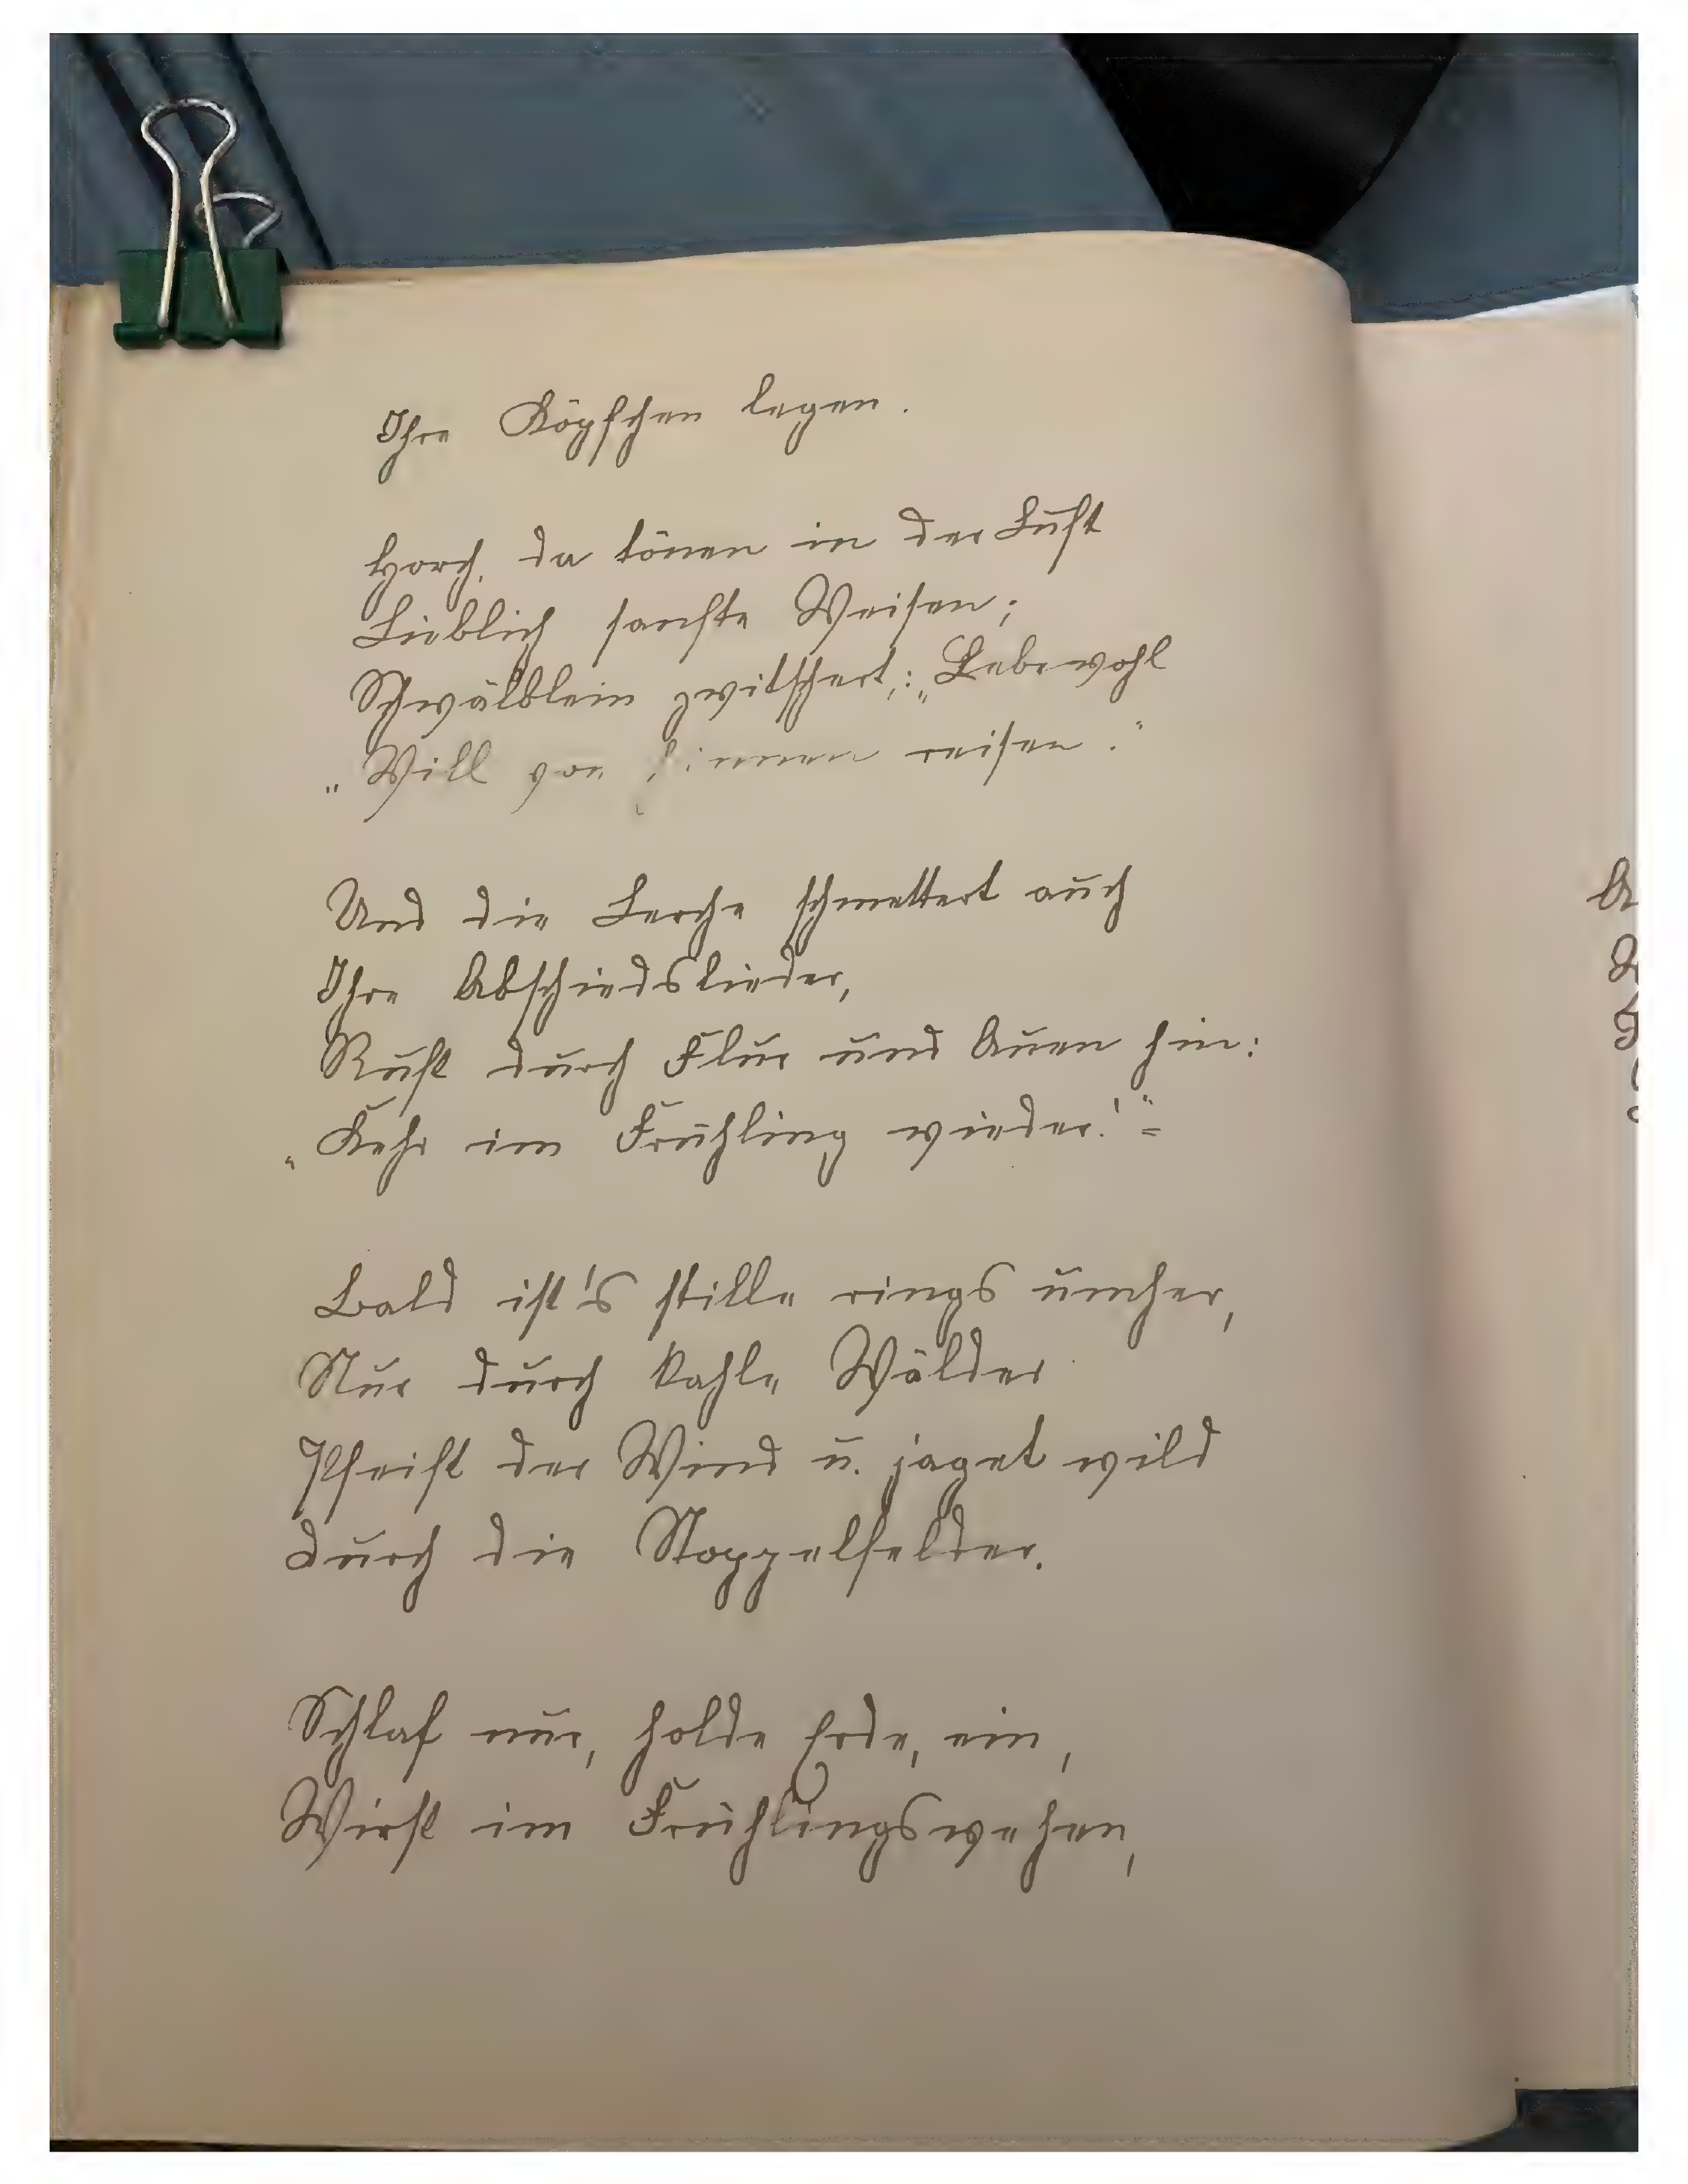 Ihre Köpfchen legen.
Horch, da tönen in der Luft
Lieblich sanfte Weisen;
Schwälblein zwitschert,: „Lebewohl
„Will von hinnen reisen."
Und die Lerche schmettert auch
Ihre Abschiedslieder,
Ruft durch Flur und Auen hin:
„Kehr im Frühling wieder!" =
Bald ist's stille rings umher,
Nur durch kahle Wälder
Pfeift der Wind u. jaget wild
durch die Stoppelfelder.
Schlaf nur, holde Erde, ein,
Wirst im Frühlingswehen,